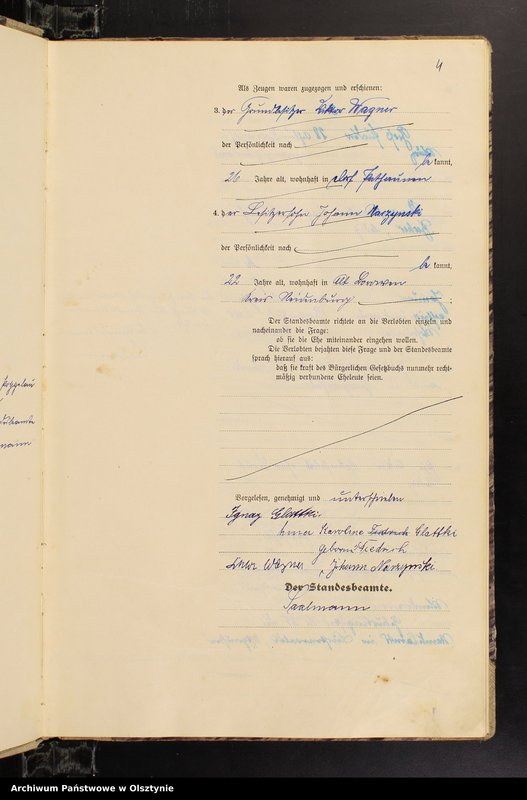 4
Als Zeugen waren zugezogen und erschienen:
3. der Grundbesitzer Viktor Wagner
der Persönlichkeit nach
be kannt,
26 Jahre alt, wohnhaft in Dorf
4. der Besitzersohn Johann Narzynski
der Persönlichkeit nach
be kannt,
22 Jahre alt, wohnhaft in Alt
Kreis Neidenburg ;
Der Standesbeamte richtete an die Verlobten einzeln und
nacheinander die Frage:
ob sie die Ehe miteinander eingehen wollen.
Die Verlobten bejahten diese Frage und der Standesbeamte
sprach hierauf aus:
daß sie kraft des Bürgerlichen Gesetzbuchs nunmehr recht-
mäßig verbundene Eheleute seien.
Vorgelesen, genehmigt und unterschrieben
Ignaz Glattki
Karoline Glattki
geborene
Viktor Wagner, Johann Narzynski
Der Standesbeamte.
Saalmann
Archiwum Państwowe w Olsztynie